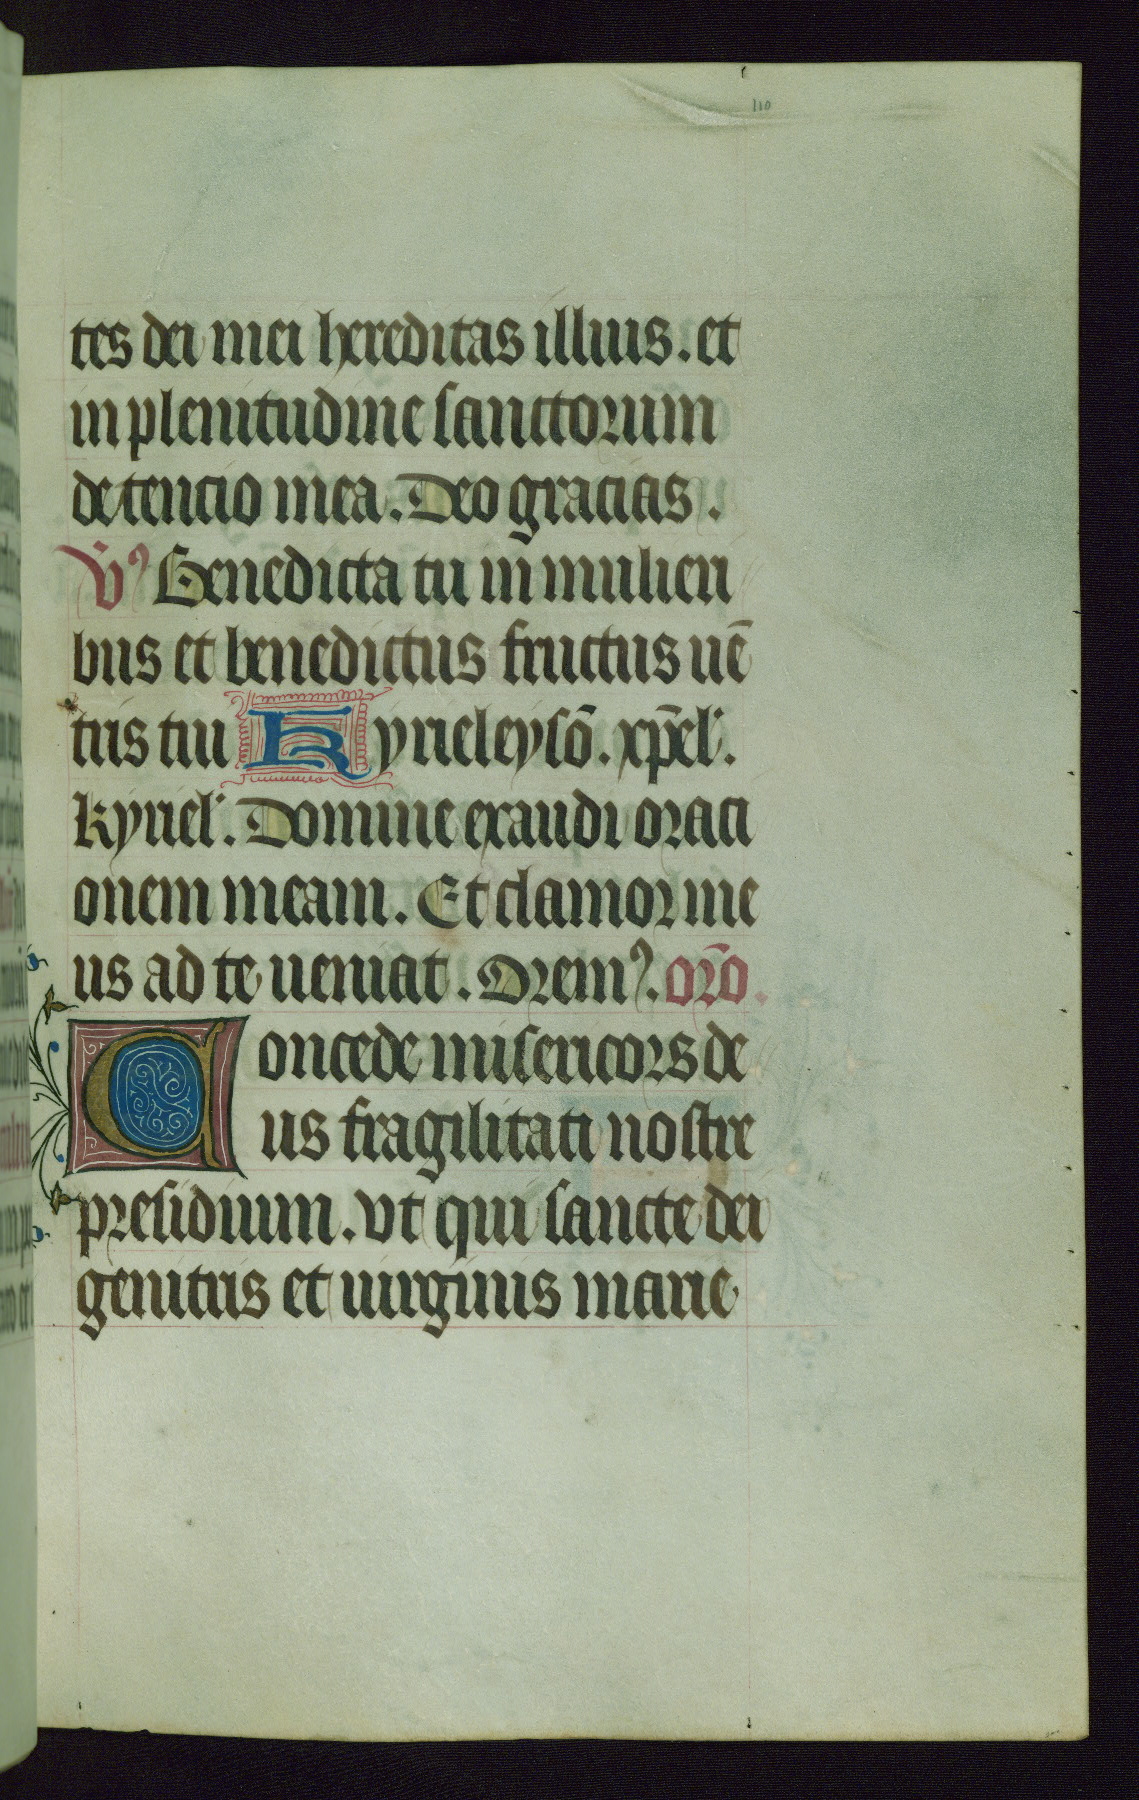 110
tes dei mei hereditas illius. et
in plenitudine sanctorum
detencio mea. Deo gracias.
V⁹ Benedicta tu in mulieri
bus et benedictus fructus uē
tris tui Kyrieleysō. xp̄el'.
kyriel'. Domine exaudi orati
onem meam. Et clamor me
us ad te ueniat. Orem⁹. or̄o.
Concede misericors de
us fragilitati nostre
presidium. vt qui sancte dei
genitris et uirginis marie